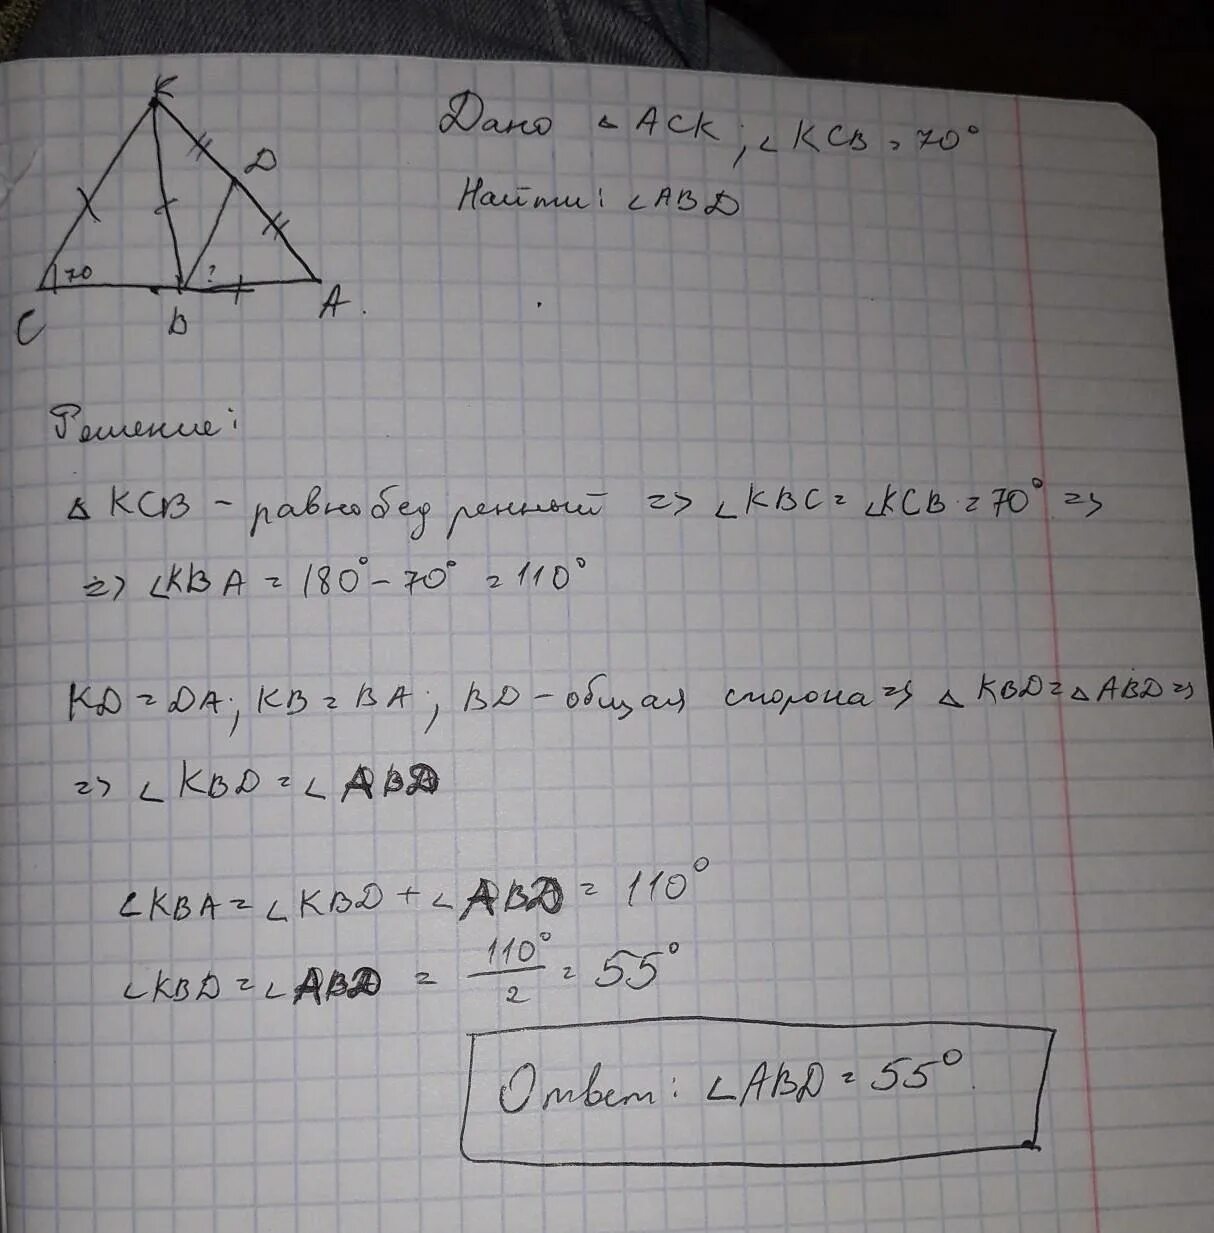 K
D
70
?
C
B
A.
Дано △ACK; ∠KCB = 70°
Найти: ∠ABD
Решение:
△KCB - равнобедренный => ∠KBC = ∠KCB = 70° =>
=> ∠KBA = 180° - 70° = 110°
KD = DA; KB = BA; BD - общая сторона => △KBD = △ABD =>
=> ∠KBD = ∠ABD
∠KBA = ∠KBD + ∠ABD = 110°
∠KBD = ∠ABD = 110°/2 = 55°
Ответ: ∠ABD = 55°.